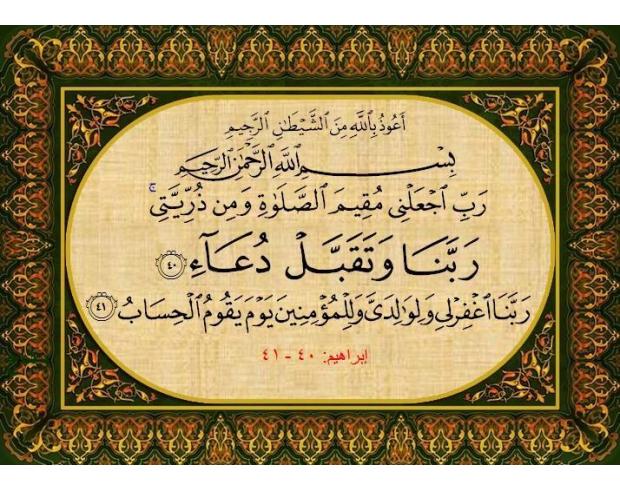 أَعُوذُ بِٱللَّهِ مِنَ ٱلشَّيْطَٰنِ ٱلرَّجِيمِ
بِسْمِ ٱللَّهِ ٱلرَّحْمَٰنِ ٱلرَّحِيمِ
رَبِّ ٱجْعَلْنِى مُقِيمَ ٱلصَّلَوٰةِ وَمِن ذُرِّيَّتِى ۚ
رَبَّنَا وَتَقَبَّلْ دُعَآءِ ﴿٤٠﴾
رَبَّنَا ٱغْفِرْ لِى وَلِوَٰلِدَىَّ وَلِلْمُؤْمِنِينَ يَوْمَ يَقُومُ ٱلْحِسَابُ ﴿٤١﴾
إبراهيم: ٤٠ - ٤١